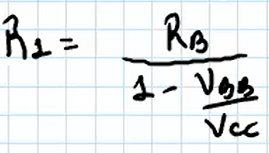 R1 = RB / (1 - VBB / VCC)